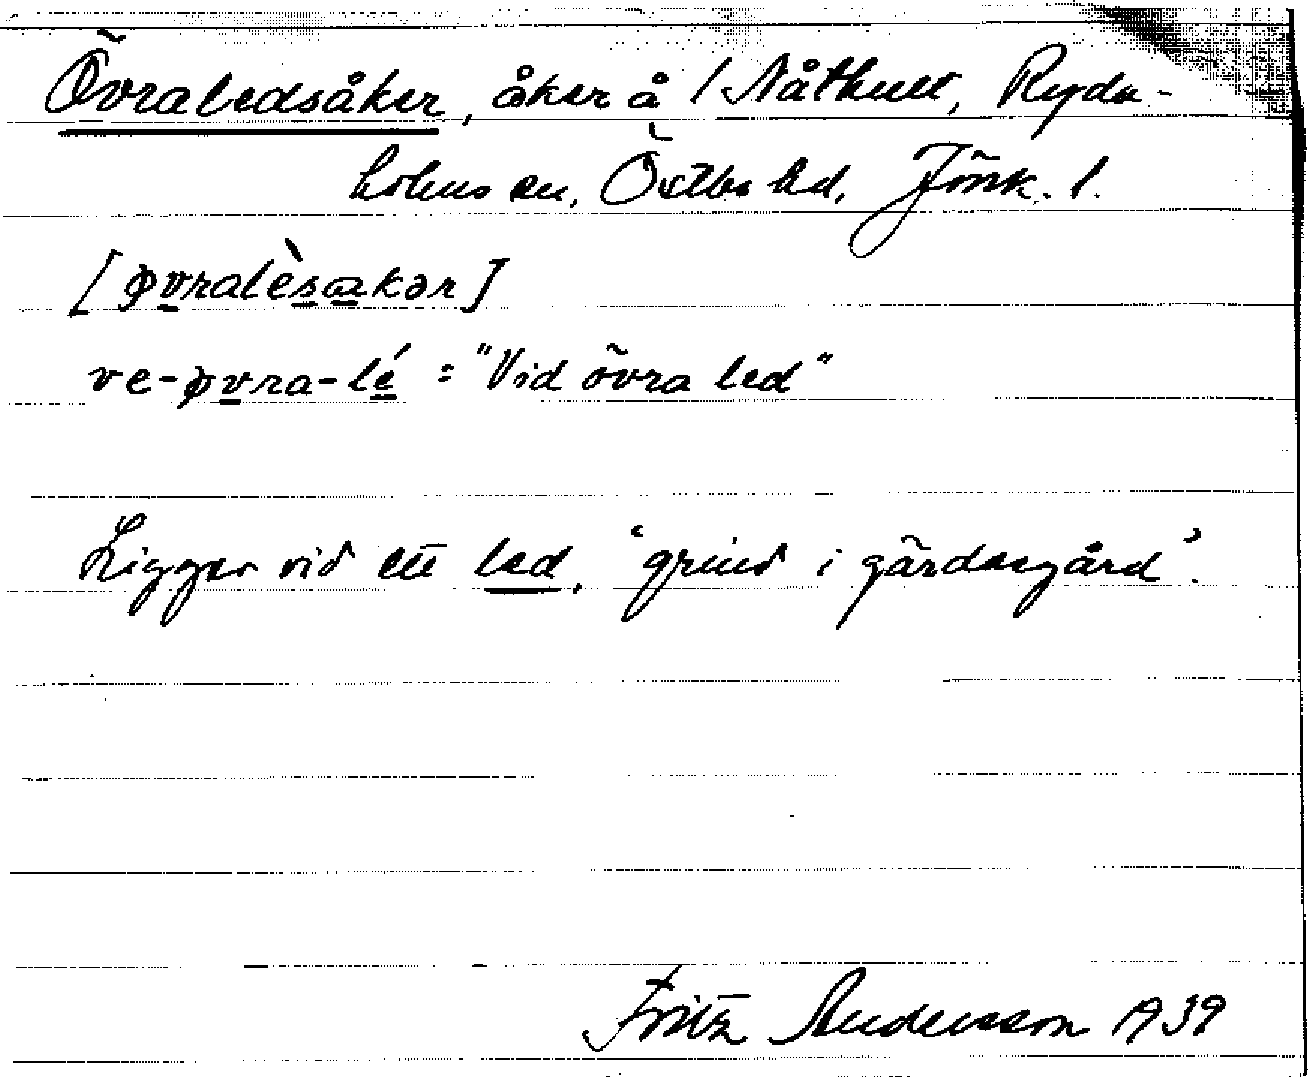 Övraledsåker, åker å /Nåthult, Ryda-
holms sn, Östbo hd, Jönk. l.
[øvralèsakər]
ve-øvra-lé = "Vid övra led"
Ligger vid ett led, 'grind i gärdesgård'.
Fritz Andersson 1939